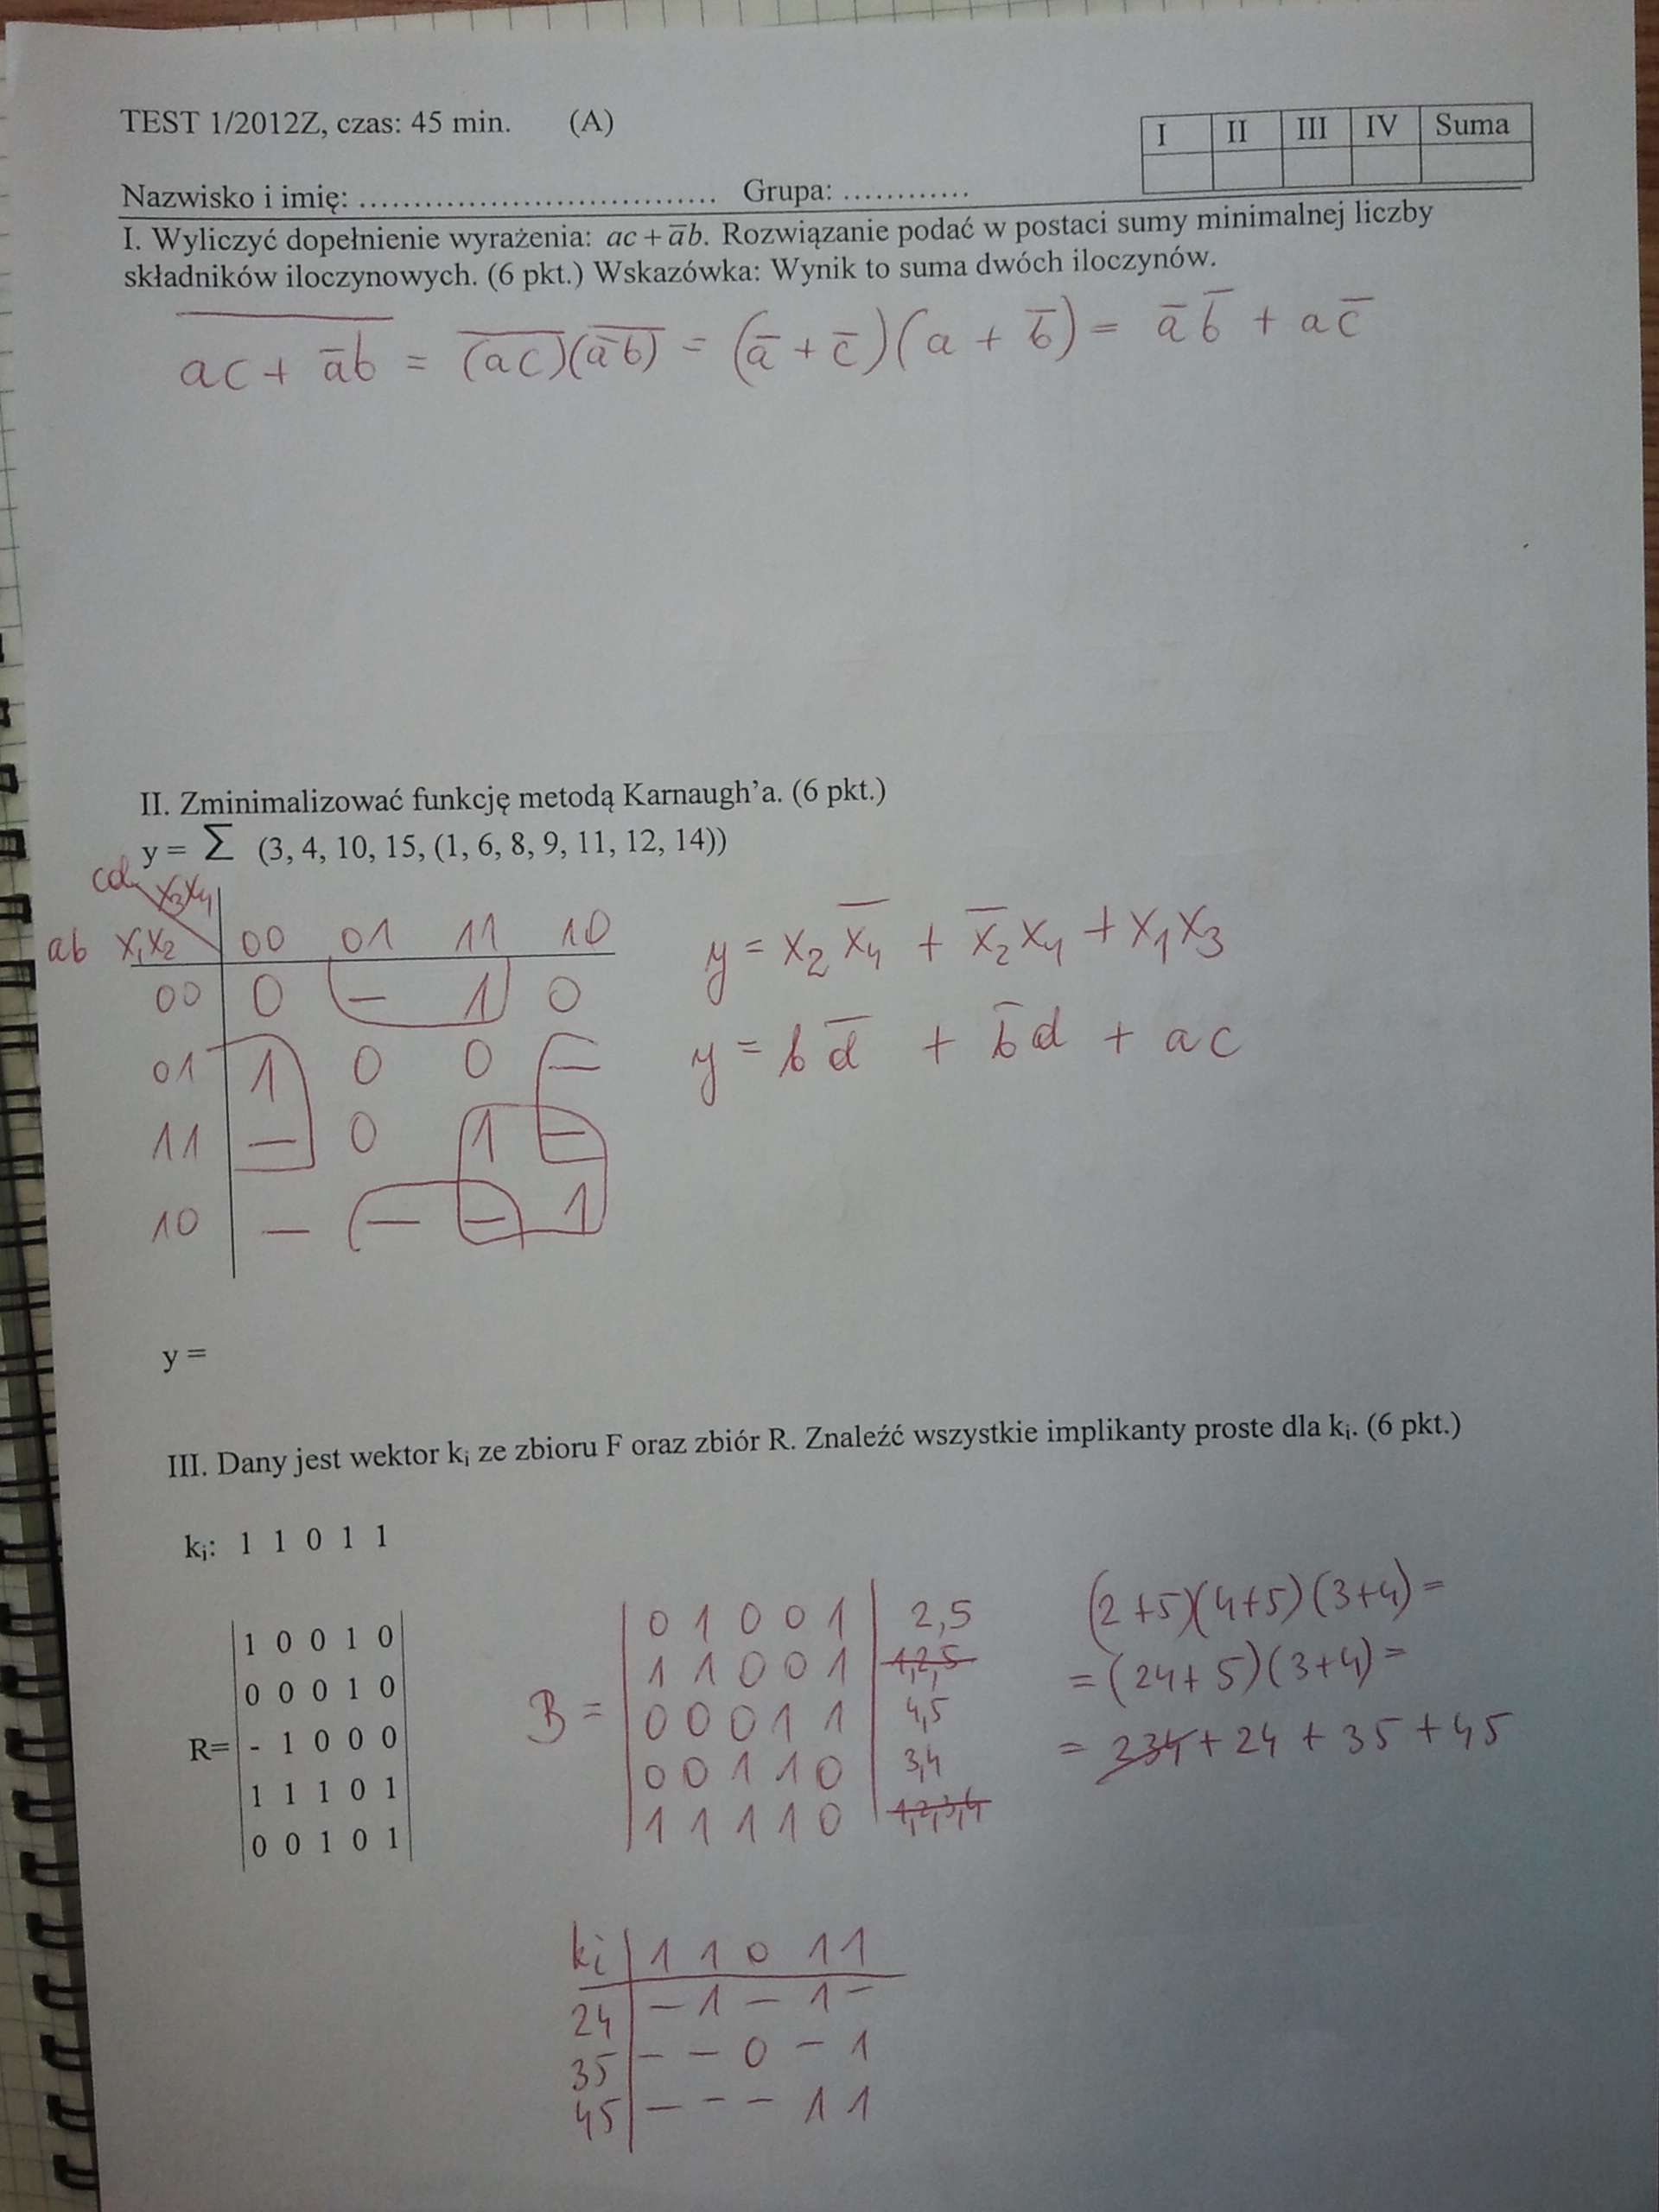 TEST 1/2012Z, czas: 45 min. (A)
I II III IV Suma
Nazwisko i imię: ................................. Grupa: ............
I. Wyliczyć dopełnienie wyrażenia: ac + a̅b. Rozwiązanie podać w postaci sumy minimalnej liczby
składników iloczynowych. (6 pkt.) Wskazówka: Wynik to suma dwóch iloczynów.
\overline{ac + a̅b} = \overline{(ac)}\overline{(a̅b)} = (a̅ + c̅)(a + b̅) = a̅b̅ + ac̅
II. Zminimalizować funkcję metodą Karnaugh’a. (6 pkt.)
y = Σ (3, 4, 10, 15, (1, 6, 8, 9, 11, 12, 14))
cd x₃x₄
ab x₁x₂ 00 01 11 10
00 0 – 1 0
01 1 0 0 –
11 – 0 1 –
10 – – – 1
y = x₂x̅₄ + x̅₂x₄ + x₁x₃
y = bd̅ + b̅d + ac
y =
III. Dany jest wektor kᵢ ze zbioru F oraz zbiór R. Znaleźć wszystkie implikanty proste dla kᵢ. (6 pkt.)
kᵢ: 1 1 0 1 1
R=
1 0 0 1 0
0 0 0 1 0
- 1 0 0 0
1 1 1 0 1
0 0 1 0 1
B =
0 1 0 0 1 2,5
1 1 0 0 1 1,2,5
0 0 0 1 1 4,5
0 0 1 1 0 3,4
1 1 1 1 0 1,2,3,4
(2+5)(4+5)(3+4) =
= (24+5)(3+4) =
= 234 + 24 + 35 + 45
ki 1 1 0 1 1
24 – 1 – 1 –
35 – – 0 – 1
45 – – – 1 1